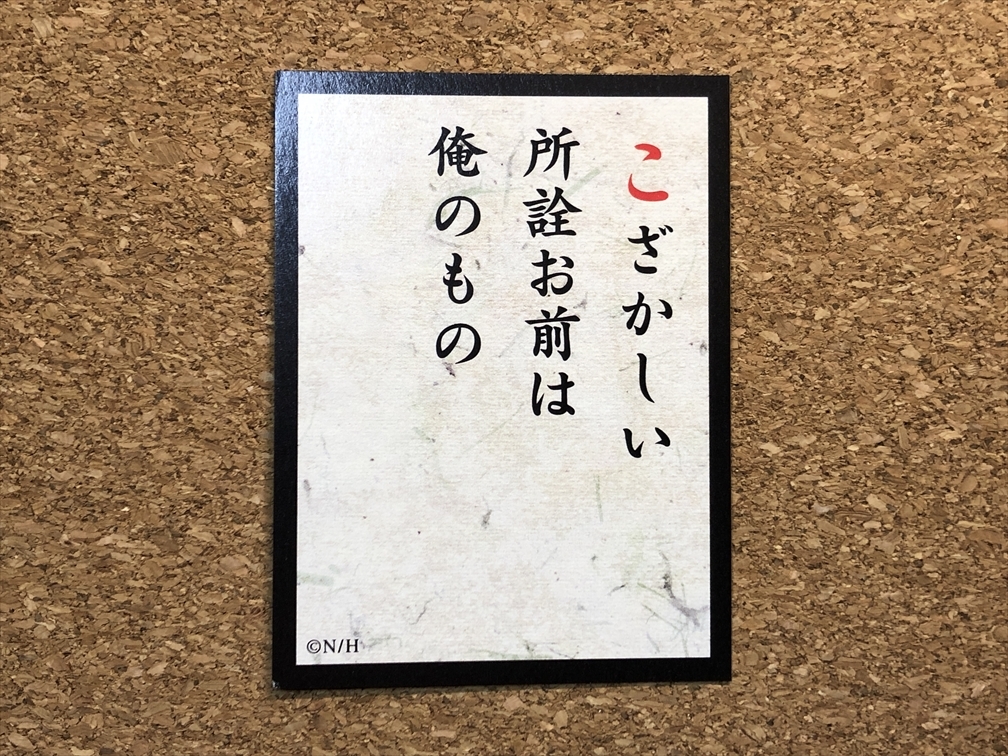 こざかしい
所詮お前は
俺のもの
©N/H